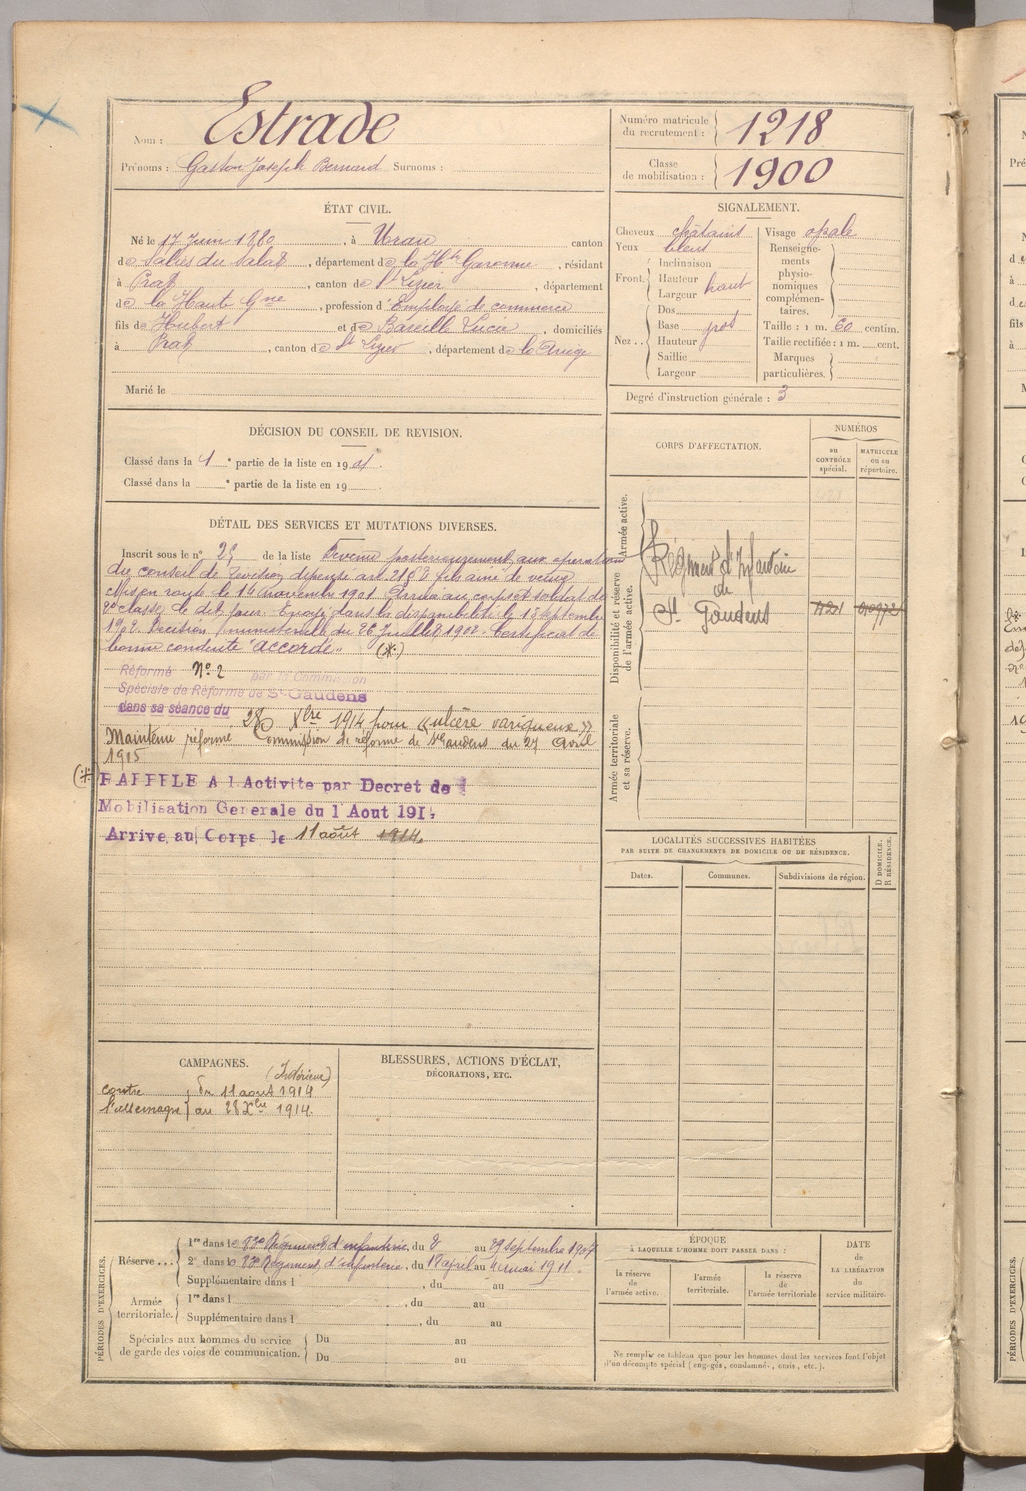 Nom : Estrade
Prénoms : Gaston Joseph Bernard Surnoms :
Numéro matricule du recrutement : 1218
Classe de mobilisation : 1900
ÉTAT CIVIL.
Né le 17 Juin 1880, à Urau canton
de Salies du Salat, département de la Hte Garonne, résidant
à Prat, canton de St Lizier, département
de la Haute Gne, profession d'Employé de commerce
fils de Hubert et de Bareille Lucie, domiciliés
à Prat, canton de St Lizier, département de la Ariège
Marié le
SIGNALEMENT.
Cheveux châtains
Yeux bleus
Front. Inclinaison
Hauteur
Largeur haut
Nez .. Dos
Base gros
Hauteur
Saillie
Largeur
Visage ovale
Renseigne-
ments
physio-
nomiques
complémen-
taires.
Taille : 1 m. 60 centim.
Taille rectifiée : 1 m. cent.
Marques
particulières.
Degré d'instruction générale : 3
DÉCISION DU CONSEIL DE REVISION.
Classé dans la 1e partie de la liste en 1901.
Classé dans la e partie de la liste en 19
CORPS D'AFFECTATION.
NUMÉROS
au CONTRÔLE spécial.
MATRICULE ou au répertoire.
Armée active.
Disponibilité et réserve de l'armée active.
Régiment d'Infanterie
de
St Gaudens
Armée territoriale et sa réserve.
DÉTAIL DES SERVICES ET MUTATIONS DIVERSES.
Inscrit sous le n° 29 de la liste Devenu postérieurement aux opérations
du conseil de révision dispensé art. 21 § 2 fils aîné de veuve
Mis en route le 14 novembre 1901 Arrivé au corps et soldat de
2e classe le dit jour. Envoyé dans la disponibilité le 18 septembre
1902. Décision ministérielle du 26 Juillet 1902. Certificat de
bonne conduite "accordé" (*)
Réformé N° 2 par la Commission
Spéciale de Réforme de St Gaudens
dans sa séance du
28 Xbre 1914 pour «ulcère variqueux»
Maintenu réformé Commission de réforme de St Gaudens du 27 Avril
1915
(*) RAPPELE A l Activite par Decret de
Mobilisation Generale du 1 Aout 1914
Arrive au Corps le 11 août 1914.
LOCALITÉS SUCCESSIVES HABITÉES
PAR SUITE DE CHANGEMENTS DE DOMICILE OU DE RÉSIDENCE.
Dates. Communes. Subdivisions de région. D DOMICILE. R RÉSIDENCE.
CAMPAGNES.
(Intérieur)
contre du 11 août 1914
l'allemagne au 28 Xbre 1914.
BLESSURES, ACTIONS D'ÉCLAT,
DÉCORATIONS, ETC.
PÉRIODES D'EXERCICES.
Réserve ... 1re dans le 83e Régiment d'infanterie, du 8 au 29 septembre 1907
2e dans le 83e Régiment d'infanterie, du 18 april au 4 mai 1911.
Supplémentaire dans l , du au
Armée territoriale. 1re dans l , du au
Supplémentaire dans l , du au
Spéciales aux hommes du service
de garde des voies de communication.
Du au
Du au
ÉPOQUE
À LAQUELLE L'HOMME DOIT PASSER DANS :
la réserve de l'armée active.
l'armée territoriale.
la réserve de l'armée territoriale
DATE
de
LA LIBÉRATION
du
service militaire.
Ne remplir ce tableau que pour les hommes dont les services font l'objet
d'un décompte spécial (engagés, condamnés, omis, etc.).